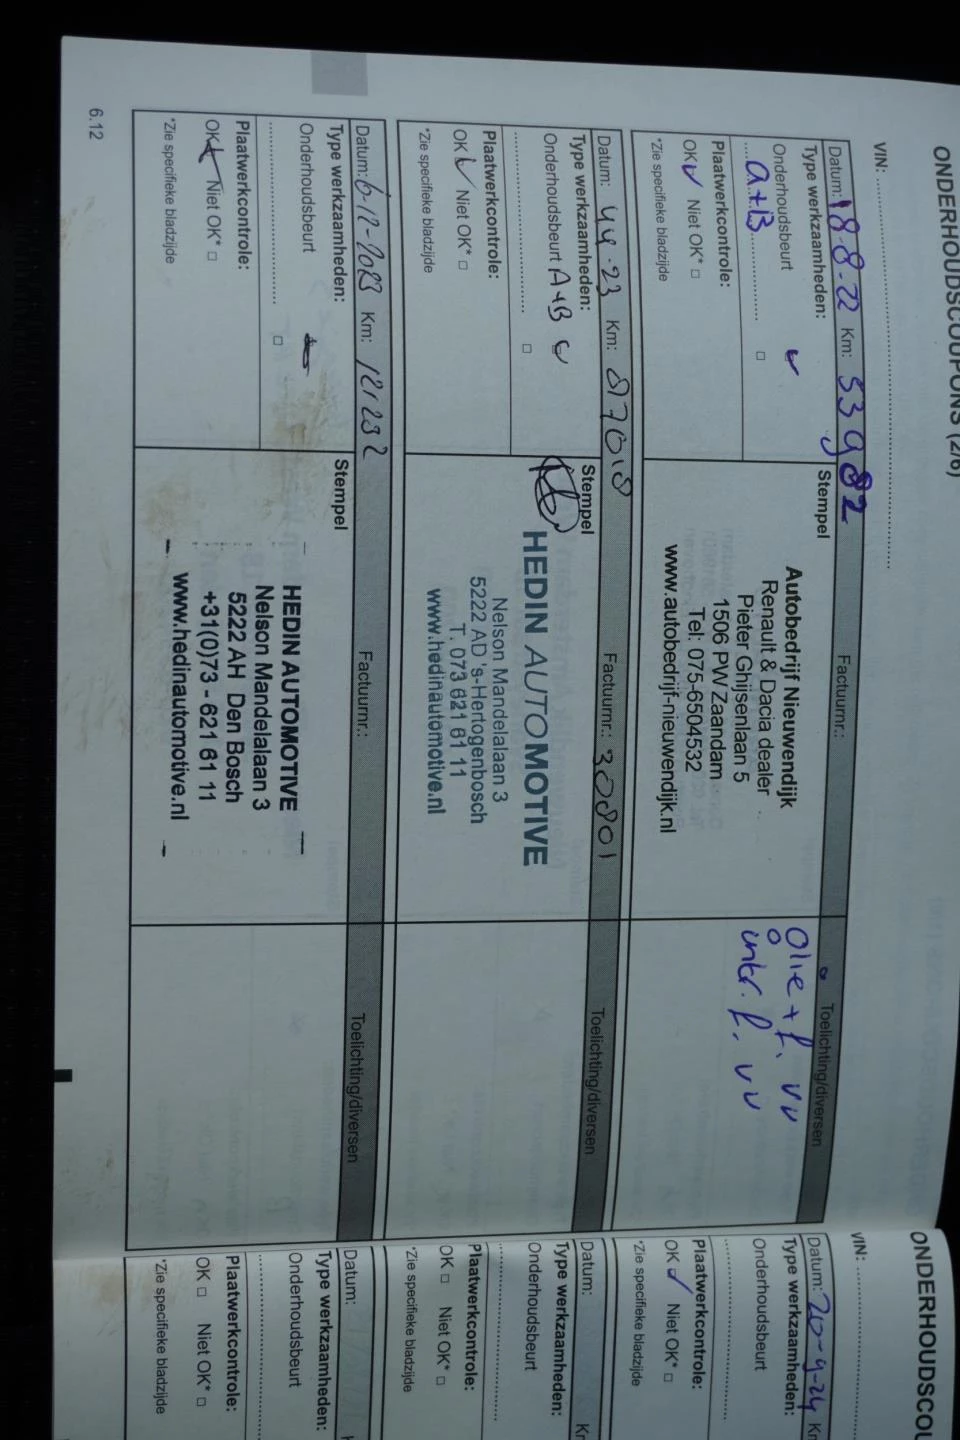 ONDERHOUDSCOUPONS (2/6)
VIN:
Datum: 18-8-22 Km: 53982 Factuurnr.: Toelichting/diversen
Type werkzaamheden:
Onderhoudsbeurt
a+B
Plaatwerkcontrole:
OK Niet OK*
*Zie specifieke bladzijde
Stempel
Autobedrijf Nieuwendijk
Renault & Dacia dealer
Pieter Ghijsenlaan 5
1506 PW Zaandam
Tel: 075-6504532
www.autobedrijf-nieuwendijk.nl
Olie + f. vv
intr. f. vv
Datum: 4-4-23 Km: 87018 Factuurnr.: 30801 Toelichting/diversen
Type werkzaamheden:
Onderhoudsbeurt A+B
Plaatwerkcontrole:
OK Niet OK*
*Zie specifieke bladzijde
Stempel
HEDIN AUTOMOTIVE
Nelson Mandelalaan 3
5222 AD 's-Hertogenbosch
T. 073 621 61 11
www.hedinautomotive.nl
Datum: 6-12-2023 Km: 121232 Factuurnr.: Toelichting/diversen
Type werkzaamheden:
Onderhoudsbeurt
Plaatwerkcontrole:
OK Niet OK*
*Zie specifieke bladzijde
Stempel
HEDIN AUTOMOTIVE
Nelson Mandelalaan 3
5222 AH Den Bosch
+31(0)73 - 621 61 11
www.hedinautomotive.nl
6.12
ONDERHOUDSCOU
VIN:
Datum: 20-9-24 Km
Type werkzaamheden:
Onderhoudsbeurt
Plaatwerkcontrole:
OK Niet OK*
*Zie specifieke bladzijde
Datum: Km
Type werkzaamheden:
Onderhoudsbeurt
Plaatwerkcontrole:
OK Niet OK*
*Zie specifieke bladzijde
Datum:
Type werkzaamheden:
Onderhoudsbeurt
Plaatwerkcontrole:
OK Niet OK*
*Zie specifieke bladzijde